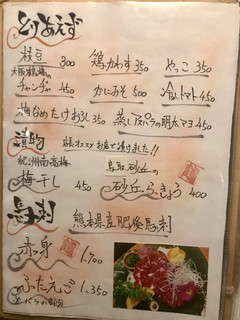 とりあえず
枝豆 300 鶏かわす 350 やっこ 350
大阪鶴橋の
チャンヂャ 450 かにみそ 500 冷しトマト 450
梅なめたけおろし 350 蒸しアスパラの明太マヨ 450
漬物 店長オススメお塩で漬けました!!
紀州南高梅 鳥取砂丘の
梅干し 450 砂丘らっきょう 400
馬刺 熊本県産肥後馬刺
赤身 1,700
ふたえご 1,350